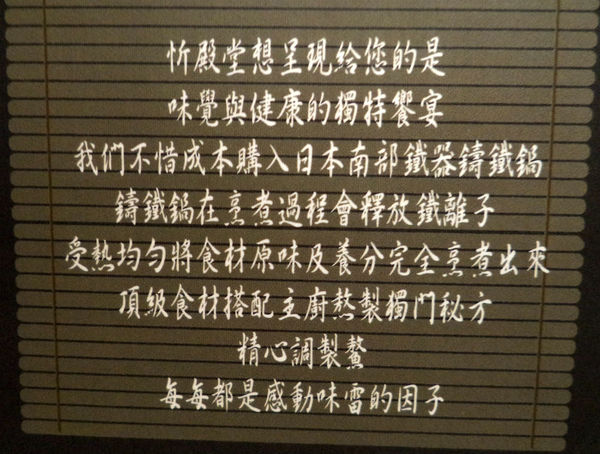 忻殿堂想呈現給您的是
味覺與健康的獨特饗宴
我們不惜成本購入日本南部鐵器鑄鐵鍋
鑄鐵鍋在烹煮過程會釋放鐵離子
受熱均勻將食材原味及養分完全烹煮出來
頂級食材搭配主廚熬製獨門秘方
精心調製鰲
每每都是感動味雷的因子